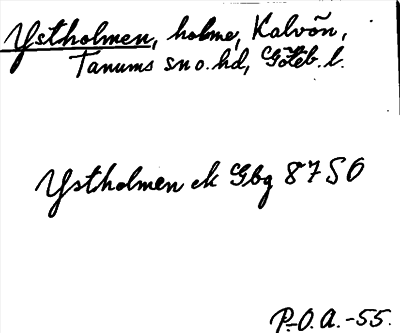 Ystholmen, holme, Kalvön,
Tanums sn o. hd, Göteb. l.
Ystholmen ek Gbg 87 SO
P.-O.A.-55.